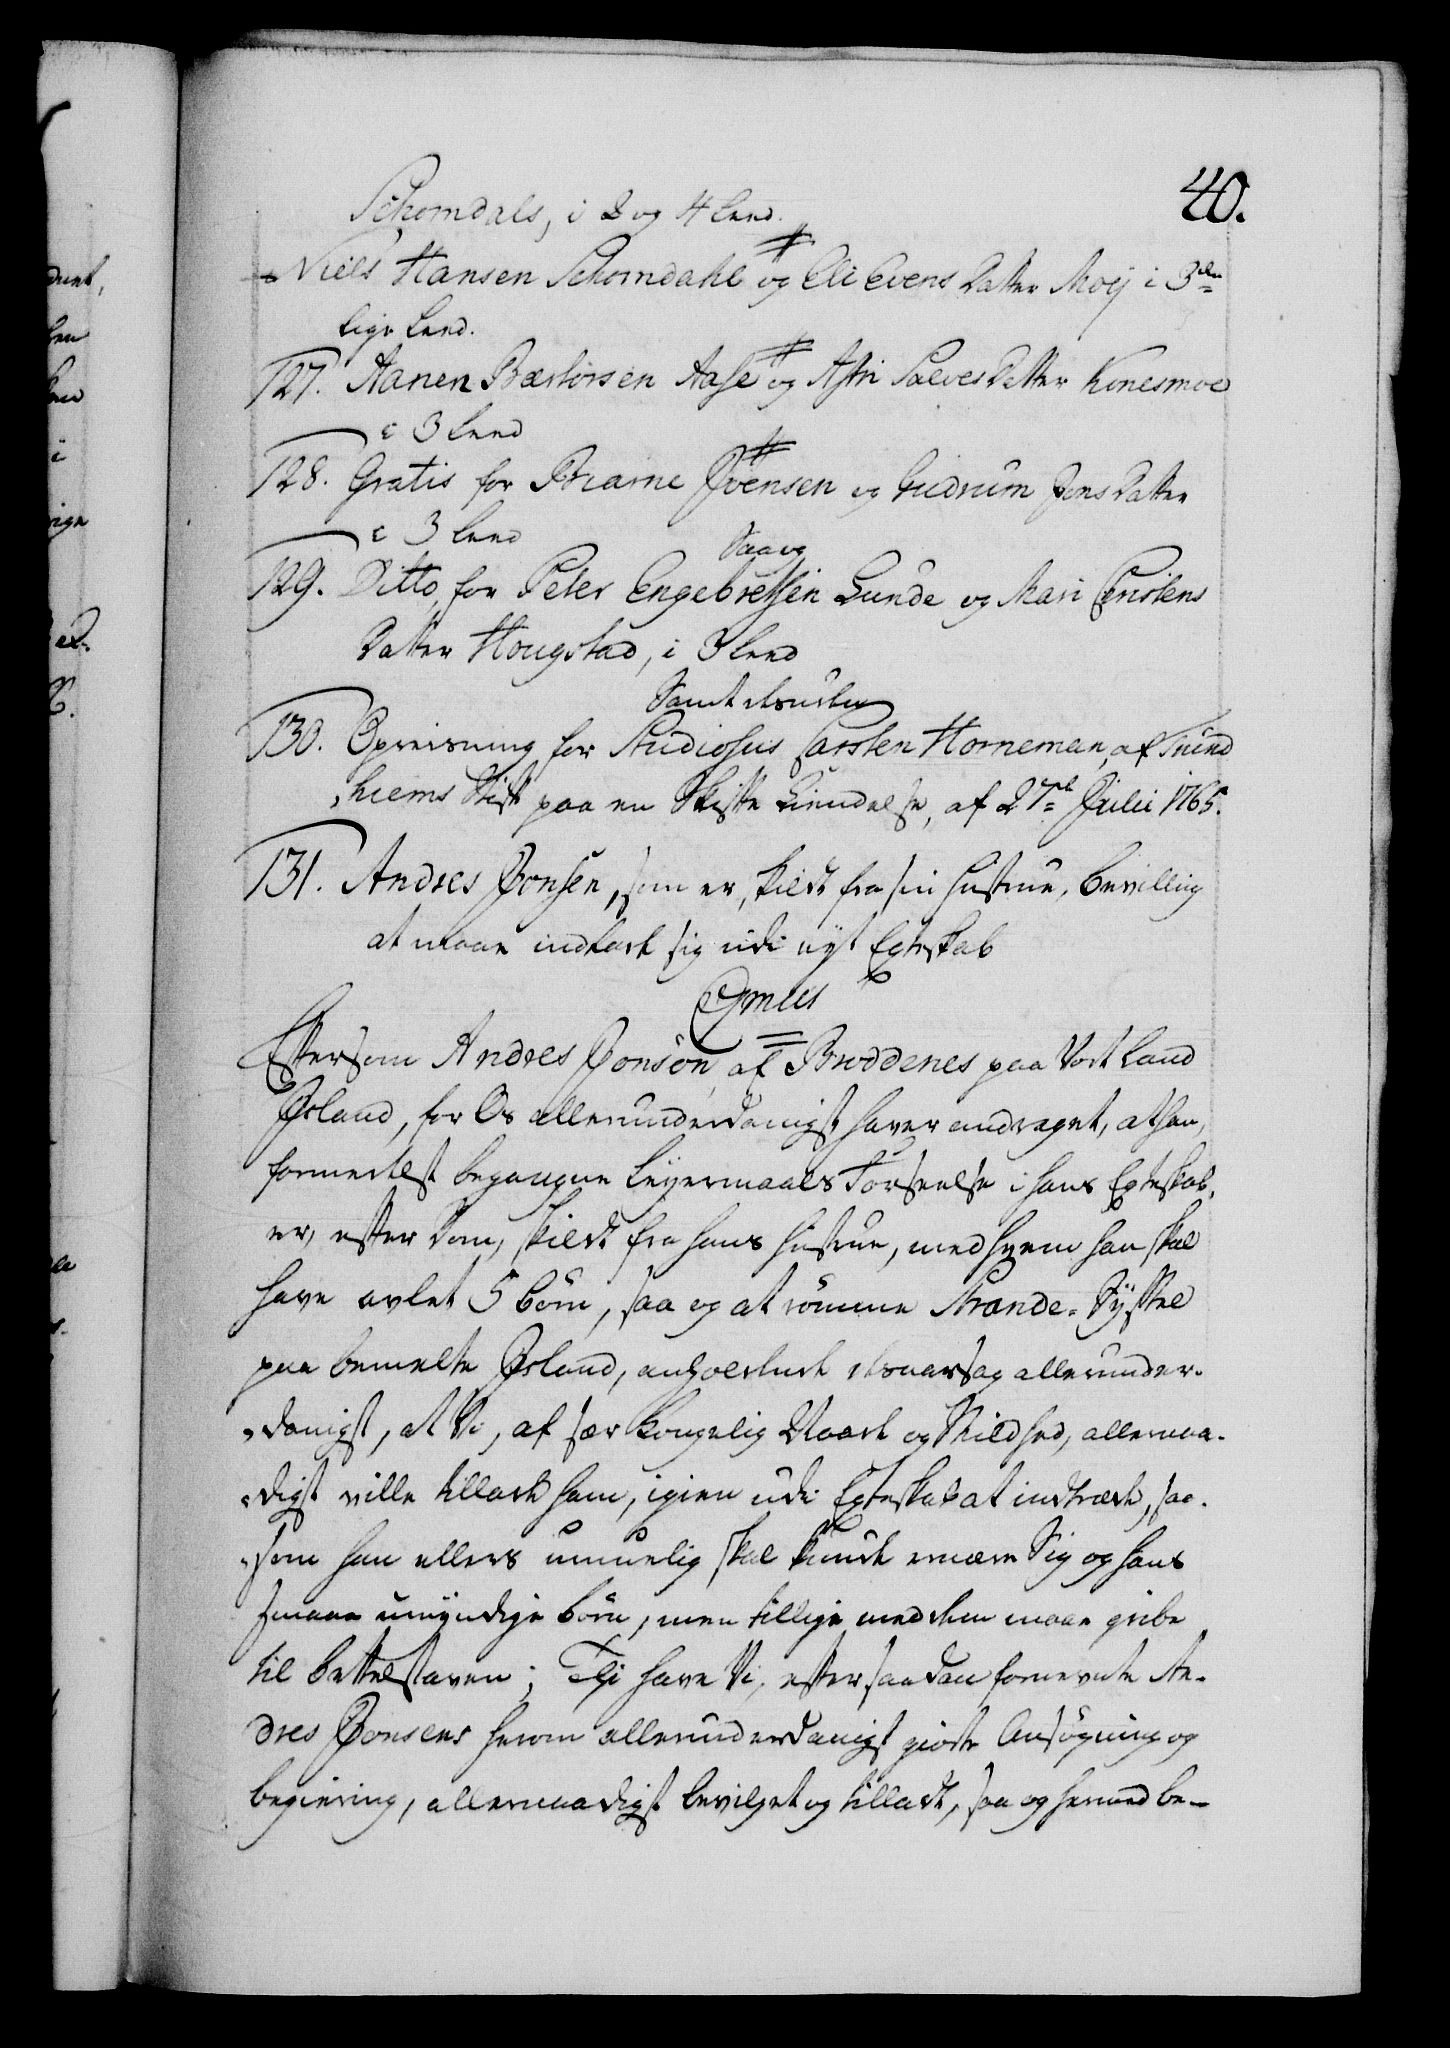 40.
Schomdals, i 2 og 4 Leed.
Niels Hansen Schomdahl og Eli Evens Datter Moej i 3de
lige Leed.
127. Aanen Bærtorsen Aase og Astri Salves Datter Konesmoe
i 3 Leed
128. Gratis for Biarne Jvensen og Gudrum Jons Datter
i 3 Leed
Saavog
129. Ditto, for Peter Engebretsen Lunde og Mari Christens
Datter Hougstad, i 3 Leed
130. Opreisning for Studiosus Carsten Horneman, af Trund
hiems Stift paa en Skifte Kiendelse, af 27de Julii 1765.
131. Andres Jonsen, som er skildt fra sin Hustrue, bevilling
at maae indlade sig udi nyt Egteskab
Eftersom Andres Jonsøn af Broddenes paa Vort Land
Jsland, for Os allerunderdanigst haver andraget, at han,
formedelst begangne Leyermaals Forseelse i hans Egteskab,
er, efter Dom, skildt fra hans Hustrue, med hvem han skal
have avlet 5 børn, saa og at rømme Strande-Syssel
paa bemelte Jsland, anholdende desaarsag allerunder-
danigst, at Vi, af sær Kongelig Naade og Mildhed, allernaa-
digst ville tillade ham, igien udi Egteskab at indtræde, saa-
som han ellers umuelig skal kunde ernære Sig og hans
smaae umyndige børn, men tillige med dem maae gribe
til bettelstaven; Thi have Vi, efter saadan fornevnte An-
dres Jonsens herom allerunderdanigst giorte Ansøgning og
begiering, allernaadigst bevilget og tilladt, saa og hermed be-